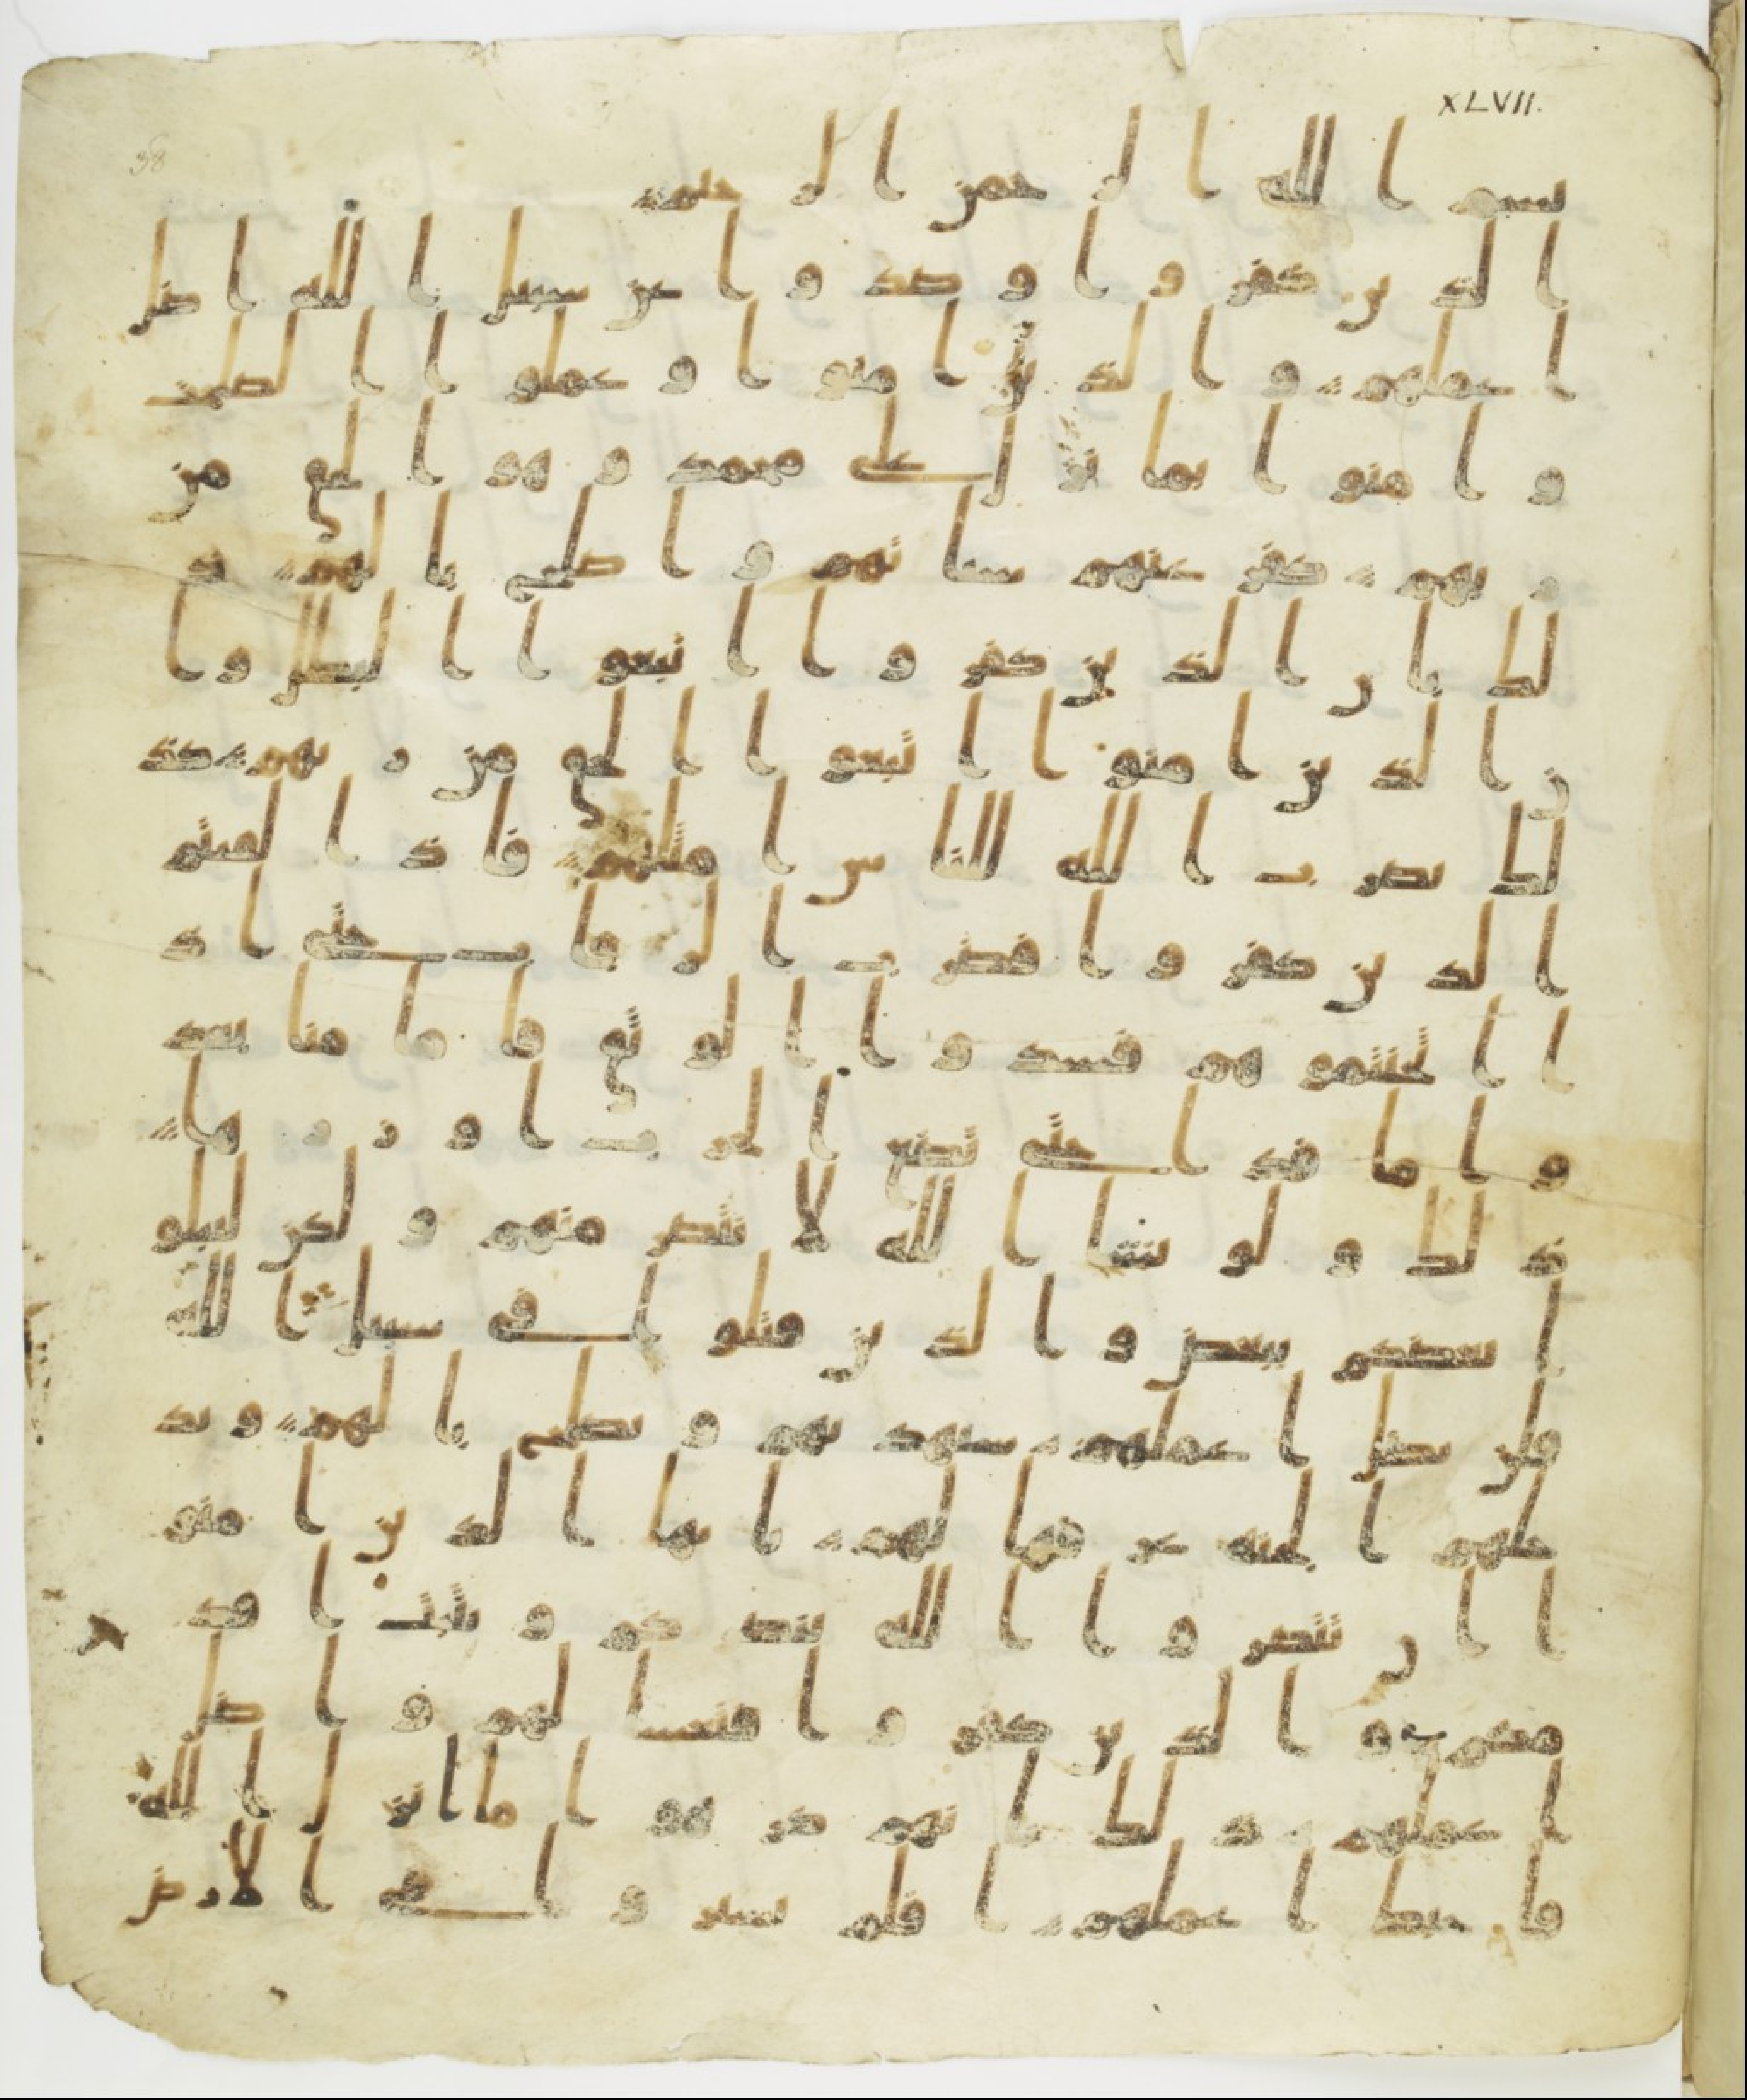 XLVII.
38
بسم الله الرحمن الرحيم
الذين كفروا وصدوا عن سبيل الله اضل
اعملهم والذين امنوا وعملوا الصلحت
وامنوا بما نزل على محمد وهو الحق من
ربهم كفر عنهم سياتهم واصلح بالهم ذ
لك بان الذين كفروا اتبعوا البطل وا
ن الذين امنوا اتبعوا الحق من ربهم كذ
لك يضرب الله للناس امثلهم فاذا لقيتم
الذين كفروا فضرب الرقاب حتى اذ
ا اثخنتموهم فشدوا الوثق فاما منا بعد
واما فدا حتى تضع الحرب اوزرها
ذلك ولو يشا الله لانتصر منهم ولكن ليبلو
ا بعضكم ببعض والذين قتلوا في سبيل الله
فلن يضل اعملهم سيهديهم ويصلح بالهم ويد
خلهم الجنه عرفها لهم يايها الذين امنو
ا ان تنصروا الله ينصركم ويثبت اقد
مكم والذين كفروا فتعسا لهم واضل
اعملهم ذلك بانهم كرهوا ما انزل الله
فاحبط اعملهم افلم يسيروا في الارض